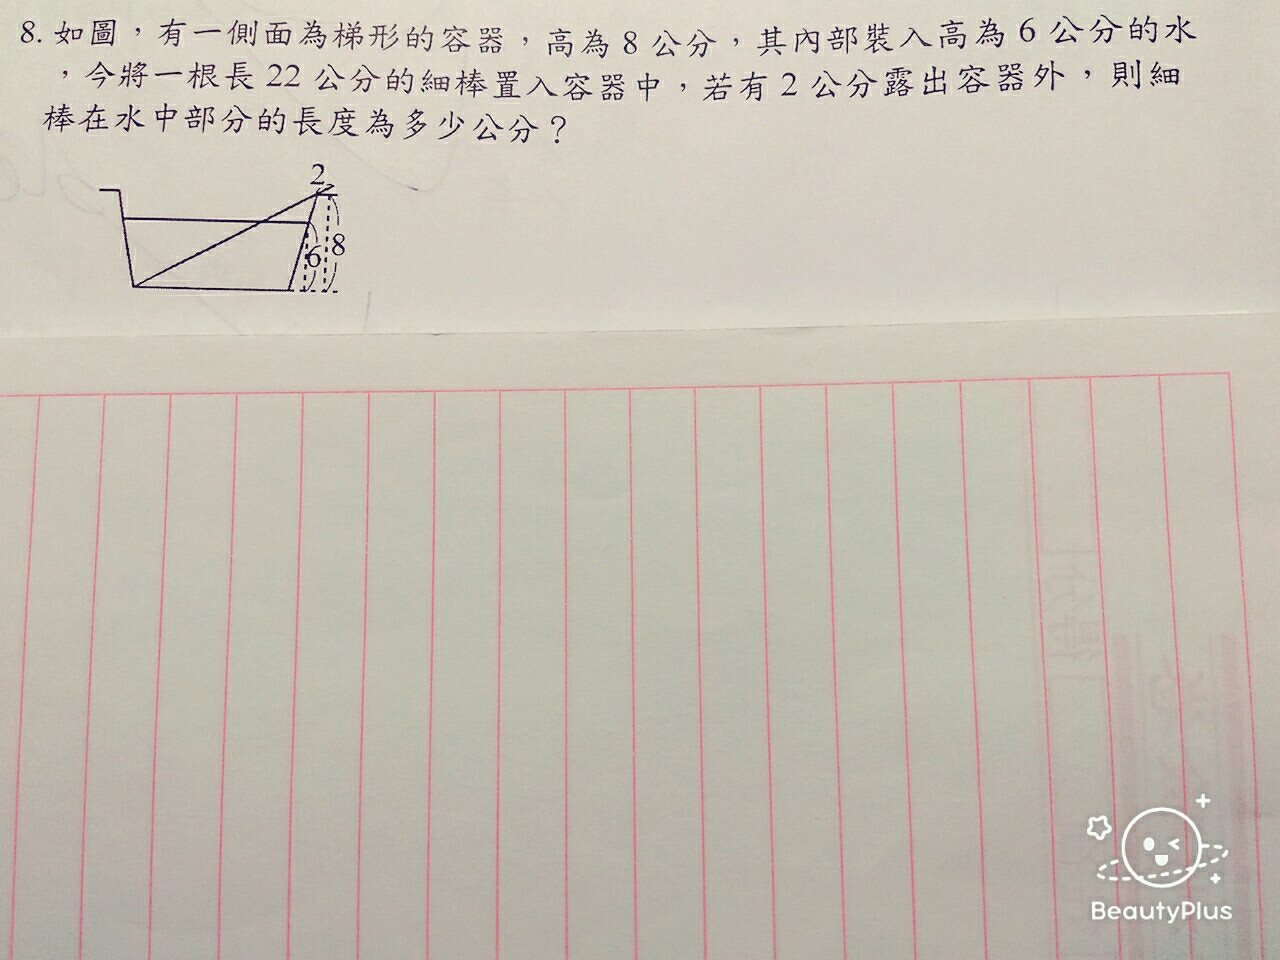 8. 如圖，有一側面為梯形的容器，高為 8 公分，其內部裝入高為 6 公分的水
，今將一根長 22 公分的細棒置入容器中，若有 2 公分露出容器外，則細
棒在水中部分的長度為多少公分？
2
6 8
BeautyPlus